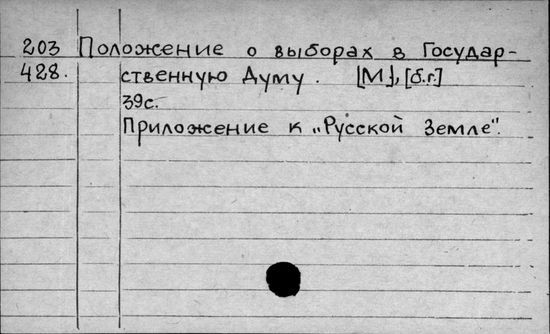 203 Положение о выборах в Государ-
428. ственную Думу. [М], [б.г.]
39с.
Приложение к „Русской Земле".